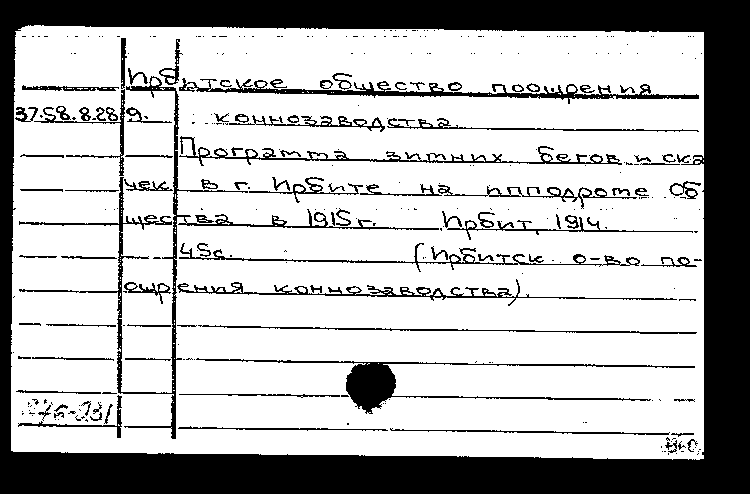 Ирбитское общество поощрения
37.58.8.28 9. коннозаводства.
Программа зимних бегов и ска
чек в г. Ирбите на ипподроме Об-
щества в 1915 г. Ирбит, 1914.
45с. (Ирбитск о-во по-
ощрения коннозаводства).